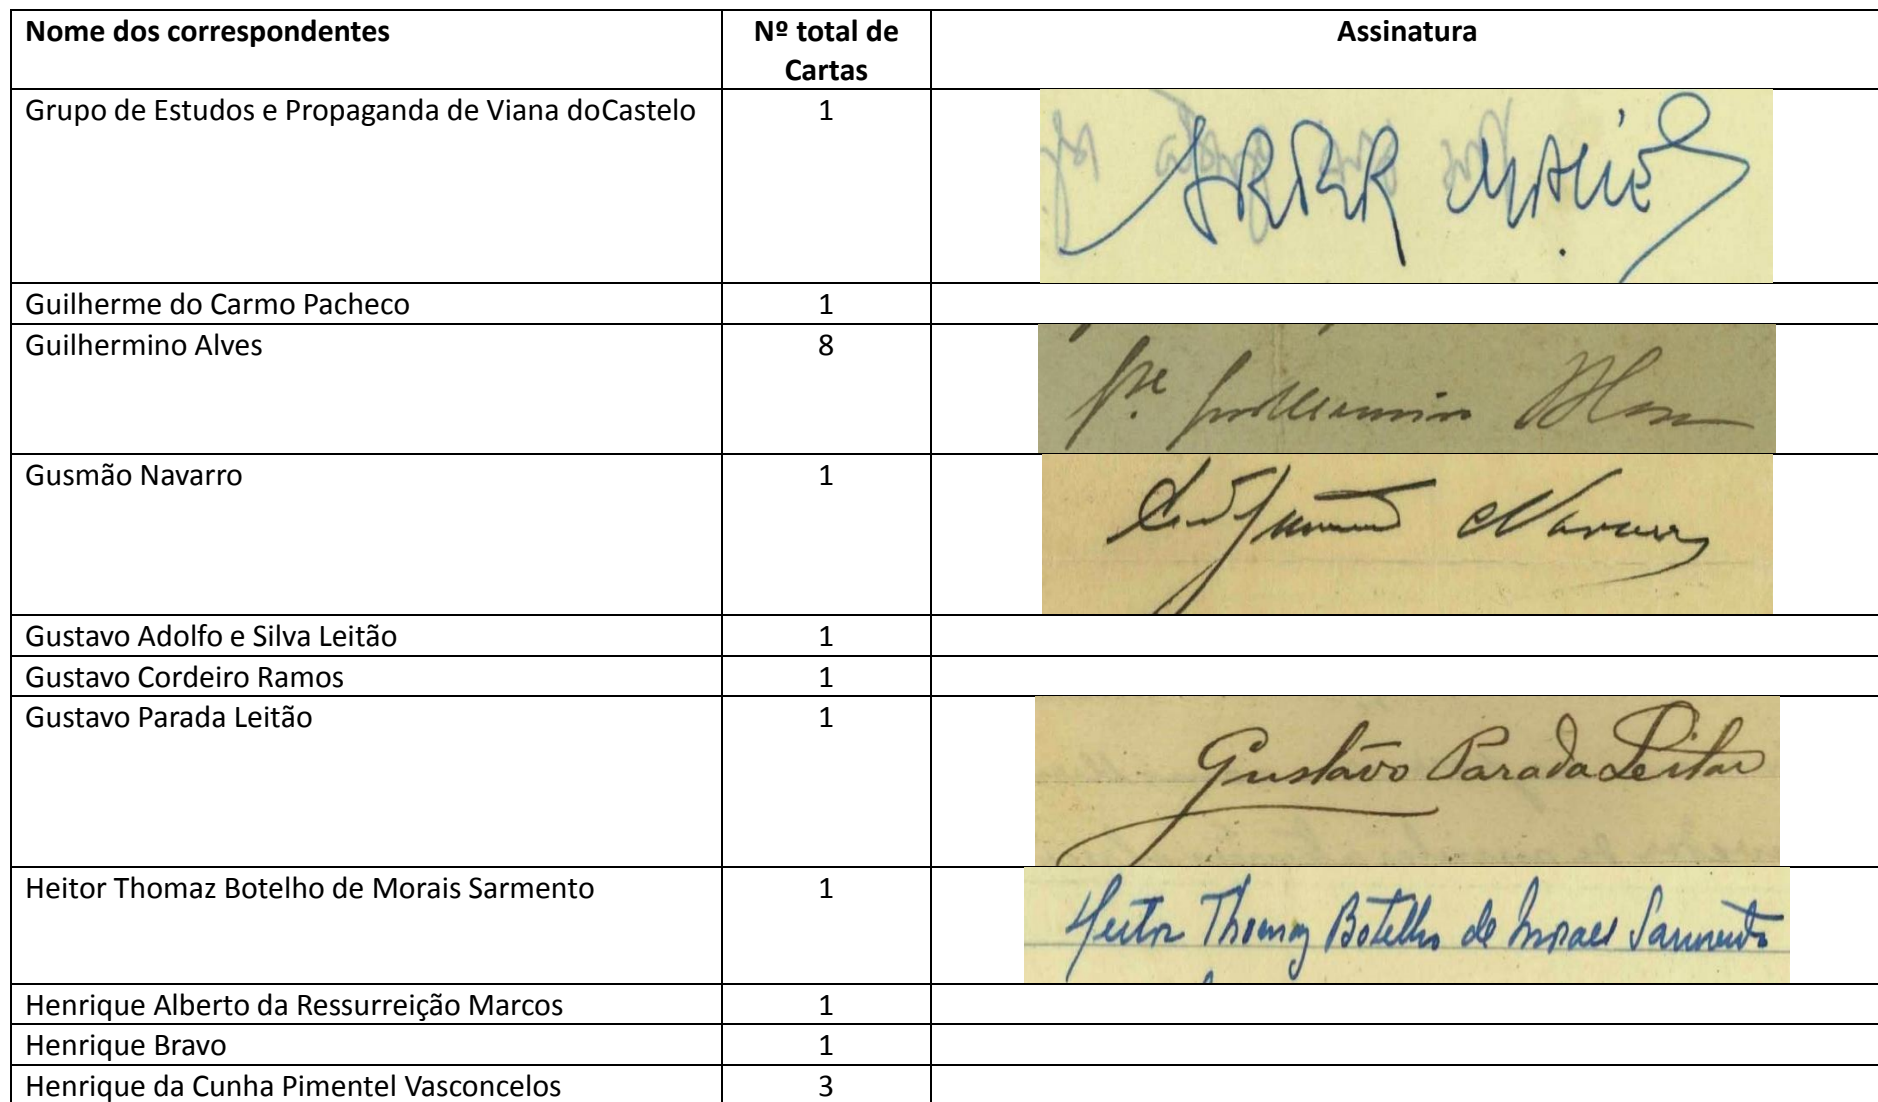 Nome dos correspondentes
Nº total de
Cartas
Assinatura
Grupo de Estudos e Propaganda de Viana doCastelo
1
Guilherme do Carmo Pacheco
1
Guilhermino Alves
8
Pe Guilhermino Alves
Gusmão Navarro
1
Gusmão Navarro
Gustavo Adolfo e Silva Leitão
1
Gustavo Cordeiro Ramos
1
Gustavo Parada Leitão
1
Gustavo Parada Leitão
Heitor Thomaz Botelho de Morais Sarmento
1
Heitor Thomaz Botelho de Moraes Sarmento
Henrique Alberto da Ressurreição Marcos
1
Henrique Bravo
1
Henrique da Cunha Pimentel Vasconcelos
3